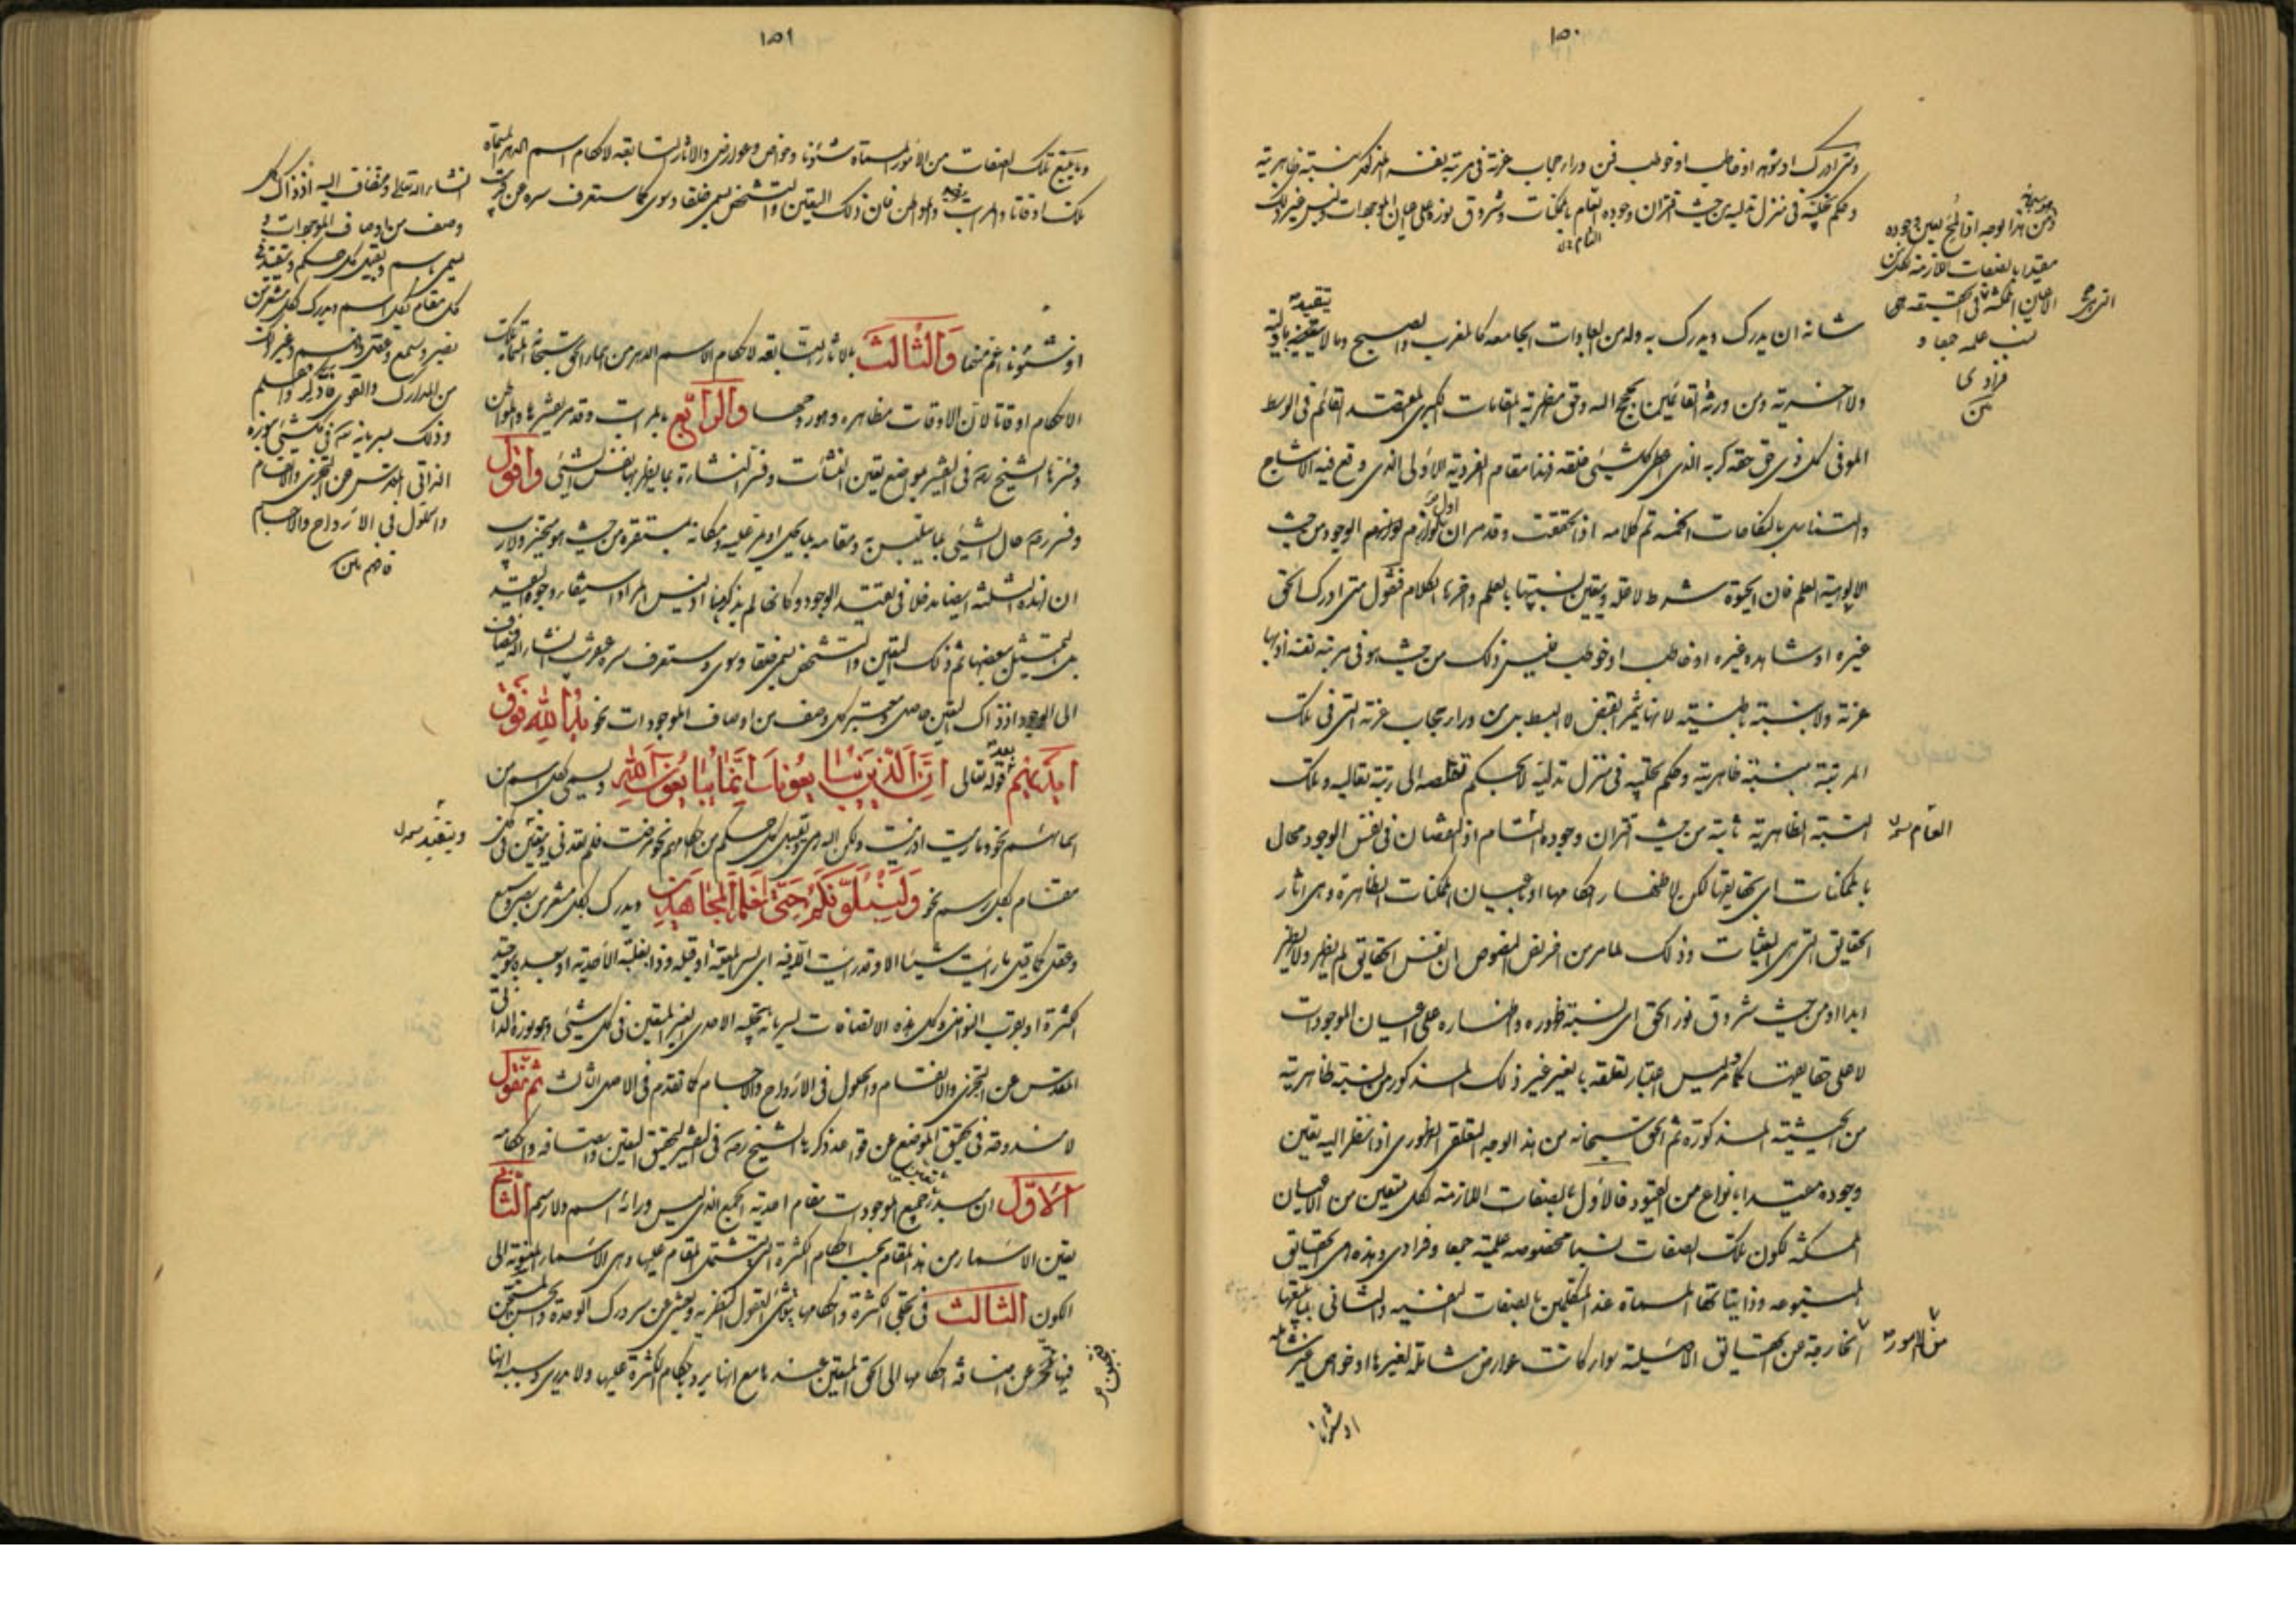 ١٥٠
ومتى ادرك او شوهد او خاطب او خوطب فمن وراء حجاب عزته فى مرتبة نفسه المذكورة بنسبة ظاهريته
وحكم تجليه فى منزل تدليه من حيث اقتران وجوده العام بالممكنات وشروق نوره على اعيان الموجودات وليس غير ذلك
شانه ان يدرك ويدرك به وله من العبادات الجامعة كالمغرب والصبح وما لا يتقيد باولية
ولا آخرية ومن ورثة القائمين بحجج الله وفى مظهرية المقامات الكبرى المعتقد القائم فى الوسط
الموفى كل ذى حق حقه كربه الذى اعطى كل شيئ خلقه فهذا مقام الفردية الاولى الذى وقع فيه الانتاج
والتناسل بالنكاحات الخمسة تم كلامه اذا تحققت وقد مر ان اول لوازم الوجود من حيث
الالوهية العلم فان الحيوة شرط لاحق ويتعين نسبتها بالعلم وآخرها الكلام فنقول متى ادرك الحق
غيره او شاهد غيره او خاطب او خوطب فليس ذلك من حيث هو فى مرتبة نفسه اذ لها
عزته ولا بنسبة باطنيته لانها تثمر القبض لا البسط بل من وراء حجاب عزته التى فى تلك
المرتبة بنسبة ظاهريته وحكم تجليه فى منزل تدليه لا بحكم تقلصه الى رتبة تعاليه وتلك
النسبة الظاهرية ثابتة من حيث اقتران وجوده التام اذ النقصان فى نفس الوجود محال
بالممكنات اى بحقايقها لكن لاظهار احكامها او باعيان الممكنات الظاهرة وهى آثار
الحقايق التى هى الغيبات وذلك لما مر من افريض النصوص ان نفس الحقايق لم يظهر ولا يظهر
ابدا او من حيث شروق نور الحق اى نسبة ظهوره واظهاره على اعيان الموجودات
لا على حقايقها كما مر ليس اعتبار تعلقه بالغير غير ذلك المذكور من نسبة ظاهريته
من الحيثية المذكورة ثم الحق سبحانه من هذا الوجه التعلقى الظهورى اذا نظر اليه تعين
وجوده مقيدا بانواع من القيود فالاول بالصفات اللازمة لكل متعين من الاعيان
الممكنة لكون تلك الصفات نسبا مخصوصة علمية جمعا وفرادى وهذه هى الحقايق
المتبوعة وذاتياتها المسماة عند المتكلمين بالصفات النفسية والثانى بما يتبعها
الخارجة عن الحقايق الاصيلة سواء كانت عوارض شاملة لغيرها او خواص غير شاملة
او شئونا
ومن هذا الوجه اذا لمح تعين وجوده
مقيدا بالصفات اللازمة لكل متعين
الاعيان الممكنة فى الحقيقة هى
نسب علمه جمعا و
فرادى
التى هى
العام
من الامور
١٥١
وما يتبع تلك الصفات من الامور المسماة شئونا وخواص وعوارض والآثار التابعة لاحكام اسم الدهر المسماة
تلك اوقاتا والمراتب والمواطن فان ذلك التعين والتشخص يسمى خلقا وسوى كما ستعرف سره عن قريب
او شئونا اعم منها والثالث بالآثار التابعة لاحكام الاسم الدهر من اسماء الحق سبحانه المسماة تلك
الاحكام اوقاتا لان الاوقات مظاهره وصور حجمها والرابع بالمراتب وقد مر تفسيرها والمواطن
وفسرها الشيخ ره فى التفسير بمواضع تعين النشآت وفسر النشأة بما يظهر بها نفس الشيئ واقول
وفسر ره حال الشيئ بما يتلبس به ومقامه بما يحل او يمر عليه ومكانه بمستقره من حيث هو متحيز ولا ريب
ان لهذه الثلثة ايضا مدخلا فى تقيد الوجود وكانها لم يذكرها اذ ليس المراد استيفاء وجوه التقيد
بل التمثيل ببعضها ثم ذلك التعين والتشخص يسمى خلقا وسوى وستعرف سره عن قريب ان شاء الله فيضاف
الى الوجود اذ ذاك التعين حاصل ومعتبر كل وصف من اوصاف الموجودات نحو يد الله فوق
ايديهم بعد قوله تعالى ان الذين يبايعونك انما يبايعون الله ويسمى بكل اسم من
اسمائهم نحو وما رميت اذ رميت ولكن الله رمى وتقبل كل حكم من احكامهم نحو مرضت فلم تعدنى ويتقيد فى كل
مقام بكل رسم نحو ولنبلونكم حتى نعلم المجاهدين ويدرك بكل مشعر من بصر وسمع
وعقل كما قيل ما رايت شيئا الا وقد رايت الله فيه اى بسر المعية او قبله وذا بغلبة الاحدية او بعده بوحد
الكثرة او بقرب النوافل وكل هذه الاتصافات لسريانه بتجليه الاحدى الغير المتعين فى كل شيئ وهو نوره الذاتى
المقدس عن التجزى والانقسام والحلول فى الارواح والاجسام كما تقدم فى الاصل الثالث ثم نقول
لا مندوحة فى تحقيق الموضع عن قواعد ذكرها الشيخ ره فى التفسير لتحقق التعين واتصافه واحكامه
الاول ان مبدأ جميع الموجودات مقام احدية الجمع الذى ليس وراءه اسم ولا رسم الثانى
تعين الاسماء من هذا المقام بحسب احكام الكثرة التى يشتمل المقام عليها وهى الاسماء المنسوبة الى
الكون الثالث فى تجلى الكثرة واحكامها يتوش العقول النظرية ويعشى عن سر درك الوحدة والحسن المستجن
فيها فتحرز عن اضافة احكامها الى الحق المتعين عندها مع انها يرد احكام الكثرة عليها ولا يدرى وسبب انها
ان شاء الله تعالى ويضاف اليه اذ ذاك كل
وصف من اوصاف الموجودات و
يسمى باسم ويقبل كل حكم ويتقيد فى
كل مقام بكل اسم ويدرك بكل مشعر من
بصر وسمع وعقل وفهم وغير ذلك
من المدارك والقوى فاذكر واعلم
وذلك لسريانه فى كل شيئ بنوره
الذاتى المقدس عن التجزى والانقسام
والحلول فى الارواح والاجسام
فافهم
ويتقيد